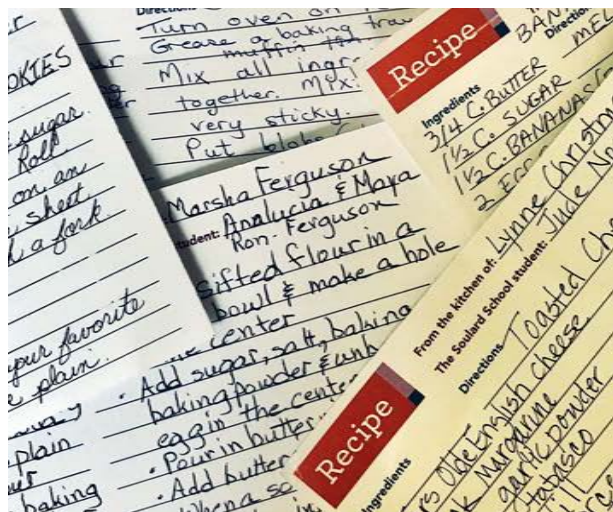 OKIES
sugar.
Roll
on an
sheet
a fork.
your favorite
plain.
Directions
Turn oven on
Grease a baking
muffin
Mix all ingr
together. Mix
very sticky.
Put blobs
Marsha Ferguson
student: Analucia & Maya
Ron-Ferguson
sifted flour in a
bowl & make a hole
center
• Add sugar, salt, baking
baking powder & unb
egg in the cente
• Pour in butter
• Add butter
When a so
plain
baking
Recipe
BANA
Directio
MEL
Ingredients
3/4 C. BUTTER
1 1/2 C. SUGAR
1 1/2 C. BANANAS
2 EGG
From the kitchen of: Lynne Christm
The Soulard School student: Jude No
Directions Toasted Ch
Recipe
Ingredients
rs Olde English cheese
k margarine
garlic powder
tabasco